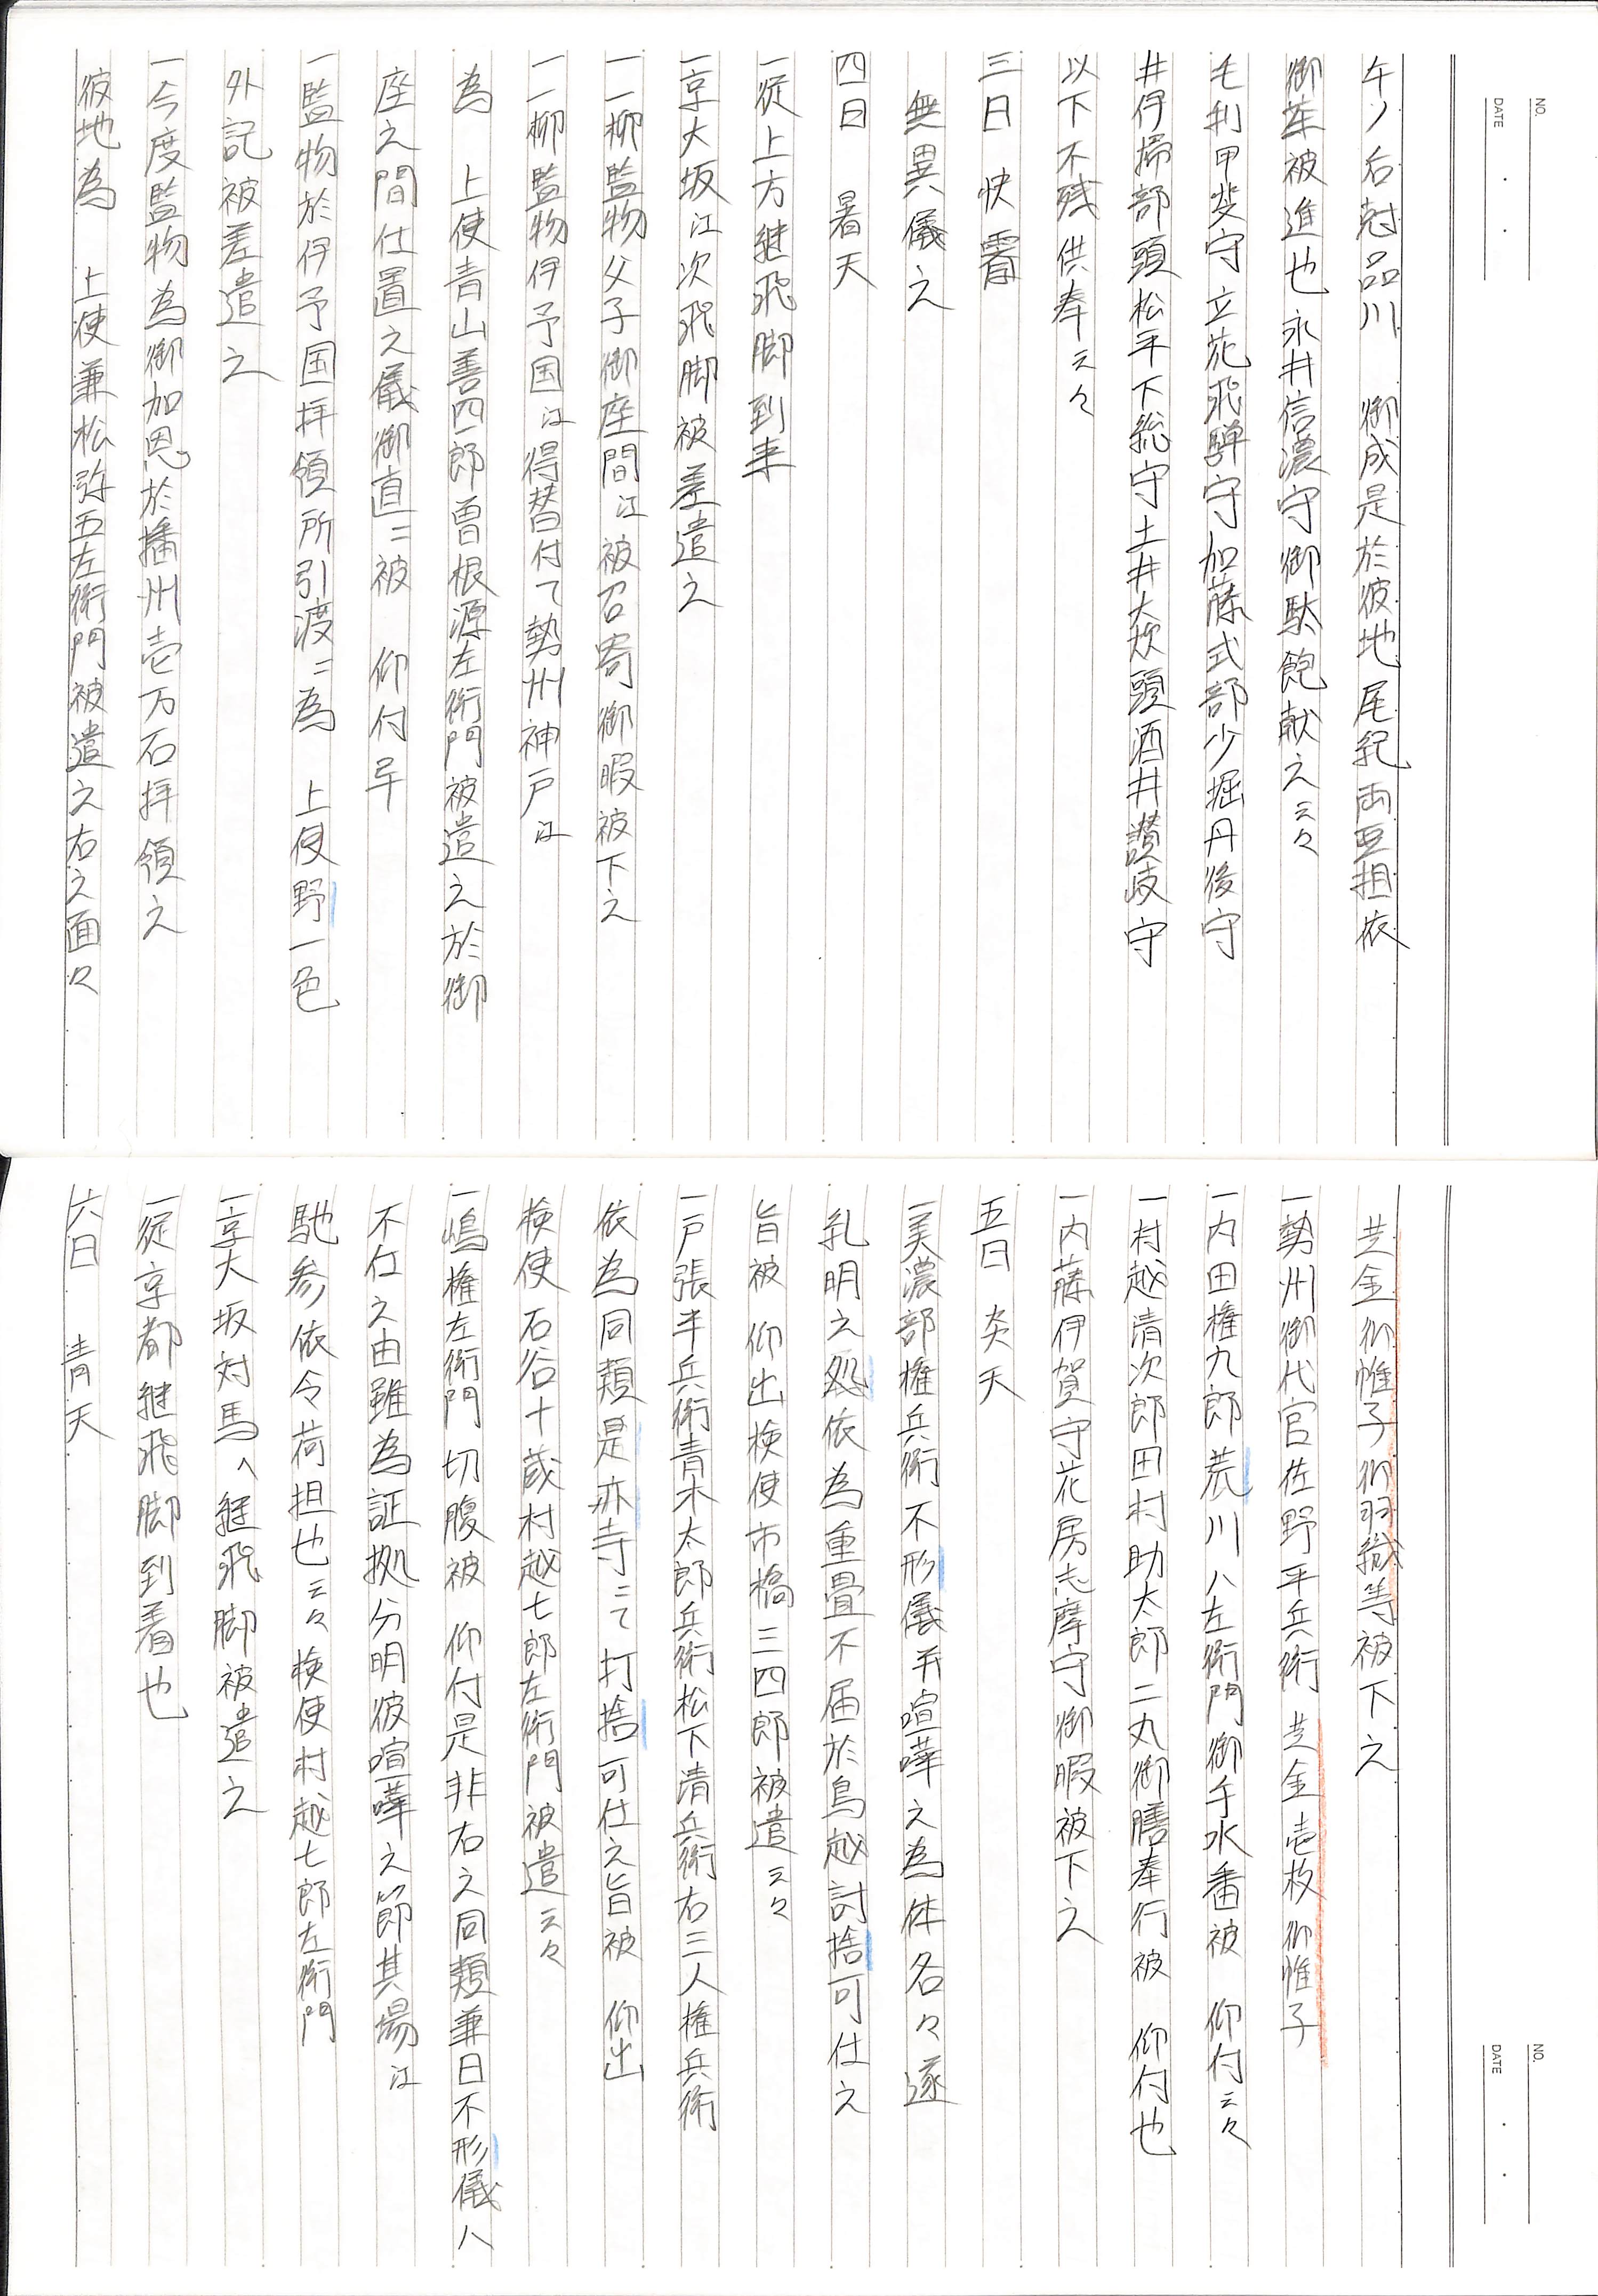 NO.
DATE
午ノ后尅品川　御成是於彼地尾紀両亜相依
御茶被進也永井信濃守御駄餉献之云々
毛利甲斐守立花飛騨守加藤式部少堀丹後守
井伊掃部頭松平下総守土井大炊頭酒井讃岐守
以下不残供奉云々
三日　快霽
無異儀之
四日　暑天
一従上方継飛脚到来
一京大坂江次飛脚被差遣之
一一柳監物父子御座間江被召寄御暇被下之
一一柳監物伊予国江得替付て勢州神戸江
為　上使青山善四郎曽根源左衛門被遣之於御
座之間仕置之儀御直ニ被　仰付早
一監物於伊予国拝領所引渡ニ為　上使野一色
外記被差遣之
一今度監物為御加恩於播州壱万石拝領之
彼地為　上使兼松弥五左衛門被遣之右之面々
NO.
DATE
芝金御帷子御羽織等被下之
一勢州御代官佐野平兵衛　芝金壱枚御帷子
一内田権九郎荒川八左衛門御手水番被　仰付云々
一村越清次郎田村助太郎二丸御膳奉行被　仰付也
一内藤伊賀守花房志摩守御暇被下之
五日　炎天
一美濃部権兵衛不形儀并喧嘩之為体名々遂
乱明之処依為重畳不届於鳥越討捨可仕之
旨被　仰出検使市橋三四郎被遣云々
一戸張半兵衛青木太郎兵衛松下清兵衛右三人権兵衛
依為同類是亦寺ニて打捨可仕之旨被　仰出
検使石谷十蔵村越七郎左衛門被遣云々
一嶋権左衛門切腹被　仰付是非右之同類兼日不形儀八
不仕之由雖為証拠分明彼喧嘩之節其場江
馳参依令荷担也云々検使村越七郎左衛門
一京大坂対馬へ継飛脚被遣之
一従京都継飛脚到着也
六日　青天